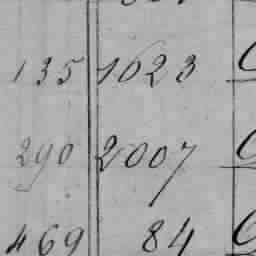 135 1023
290 2007
469 84